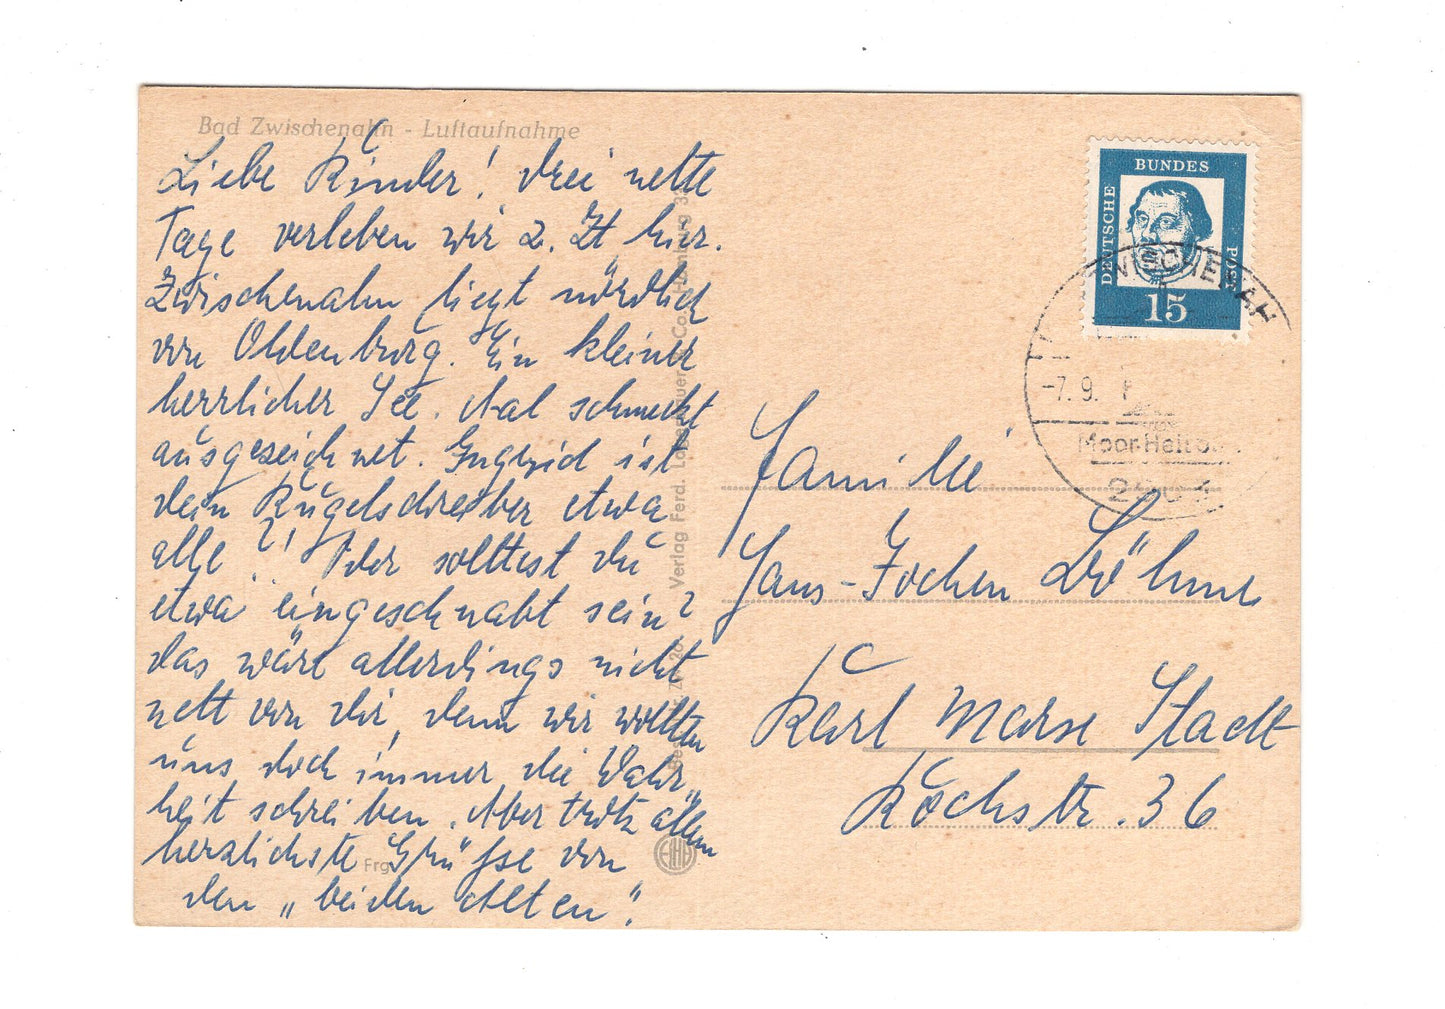 Bad Zwischenahn - Luftaufnahme
Liebe Kinder! drei nette
Tage verleben wir z. Zt hier.
Zwischenahn liegt nördlich
von Oldenburg. Ein kleiner
herrlicher See. Aal schmeckt
ausgezeichnet. Ingrid ist
dein Kugelschreiber etwa
alle?! Oder solltest du
etwa eingeschnabt sein?
das wäre allerdings nicht
nett von dir, denn wir wollten
uns doch immer die Wahr„
heit schreiben. Aber trotz allem
herzlichste Grüsse von
den „beiden Alten".
Frg.
Verlag Ferd. & Co. Hamburg 33
DEUTSCHE
BUNDES
POST
15
-7.9.
Moor-Heil
Familie
Hans-Jochen Böhme
Karl Marx Stadt
Kochstr. 36